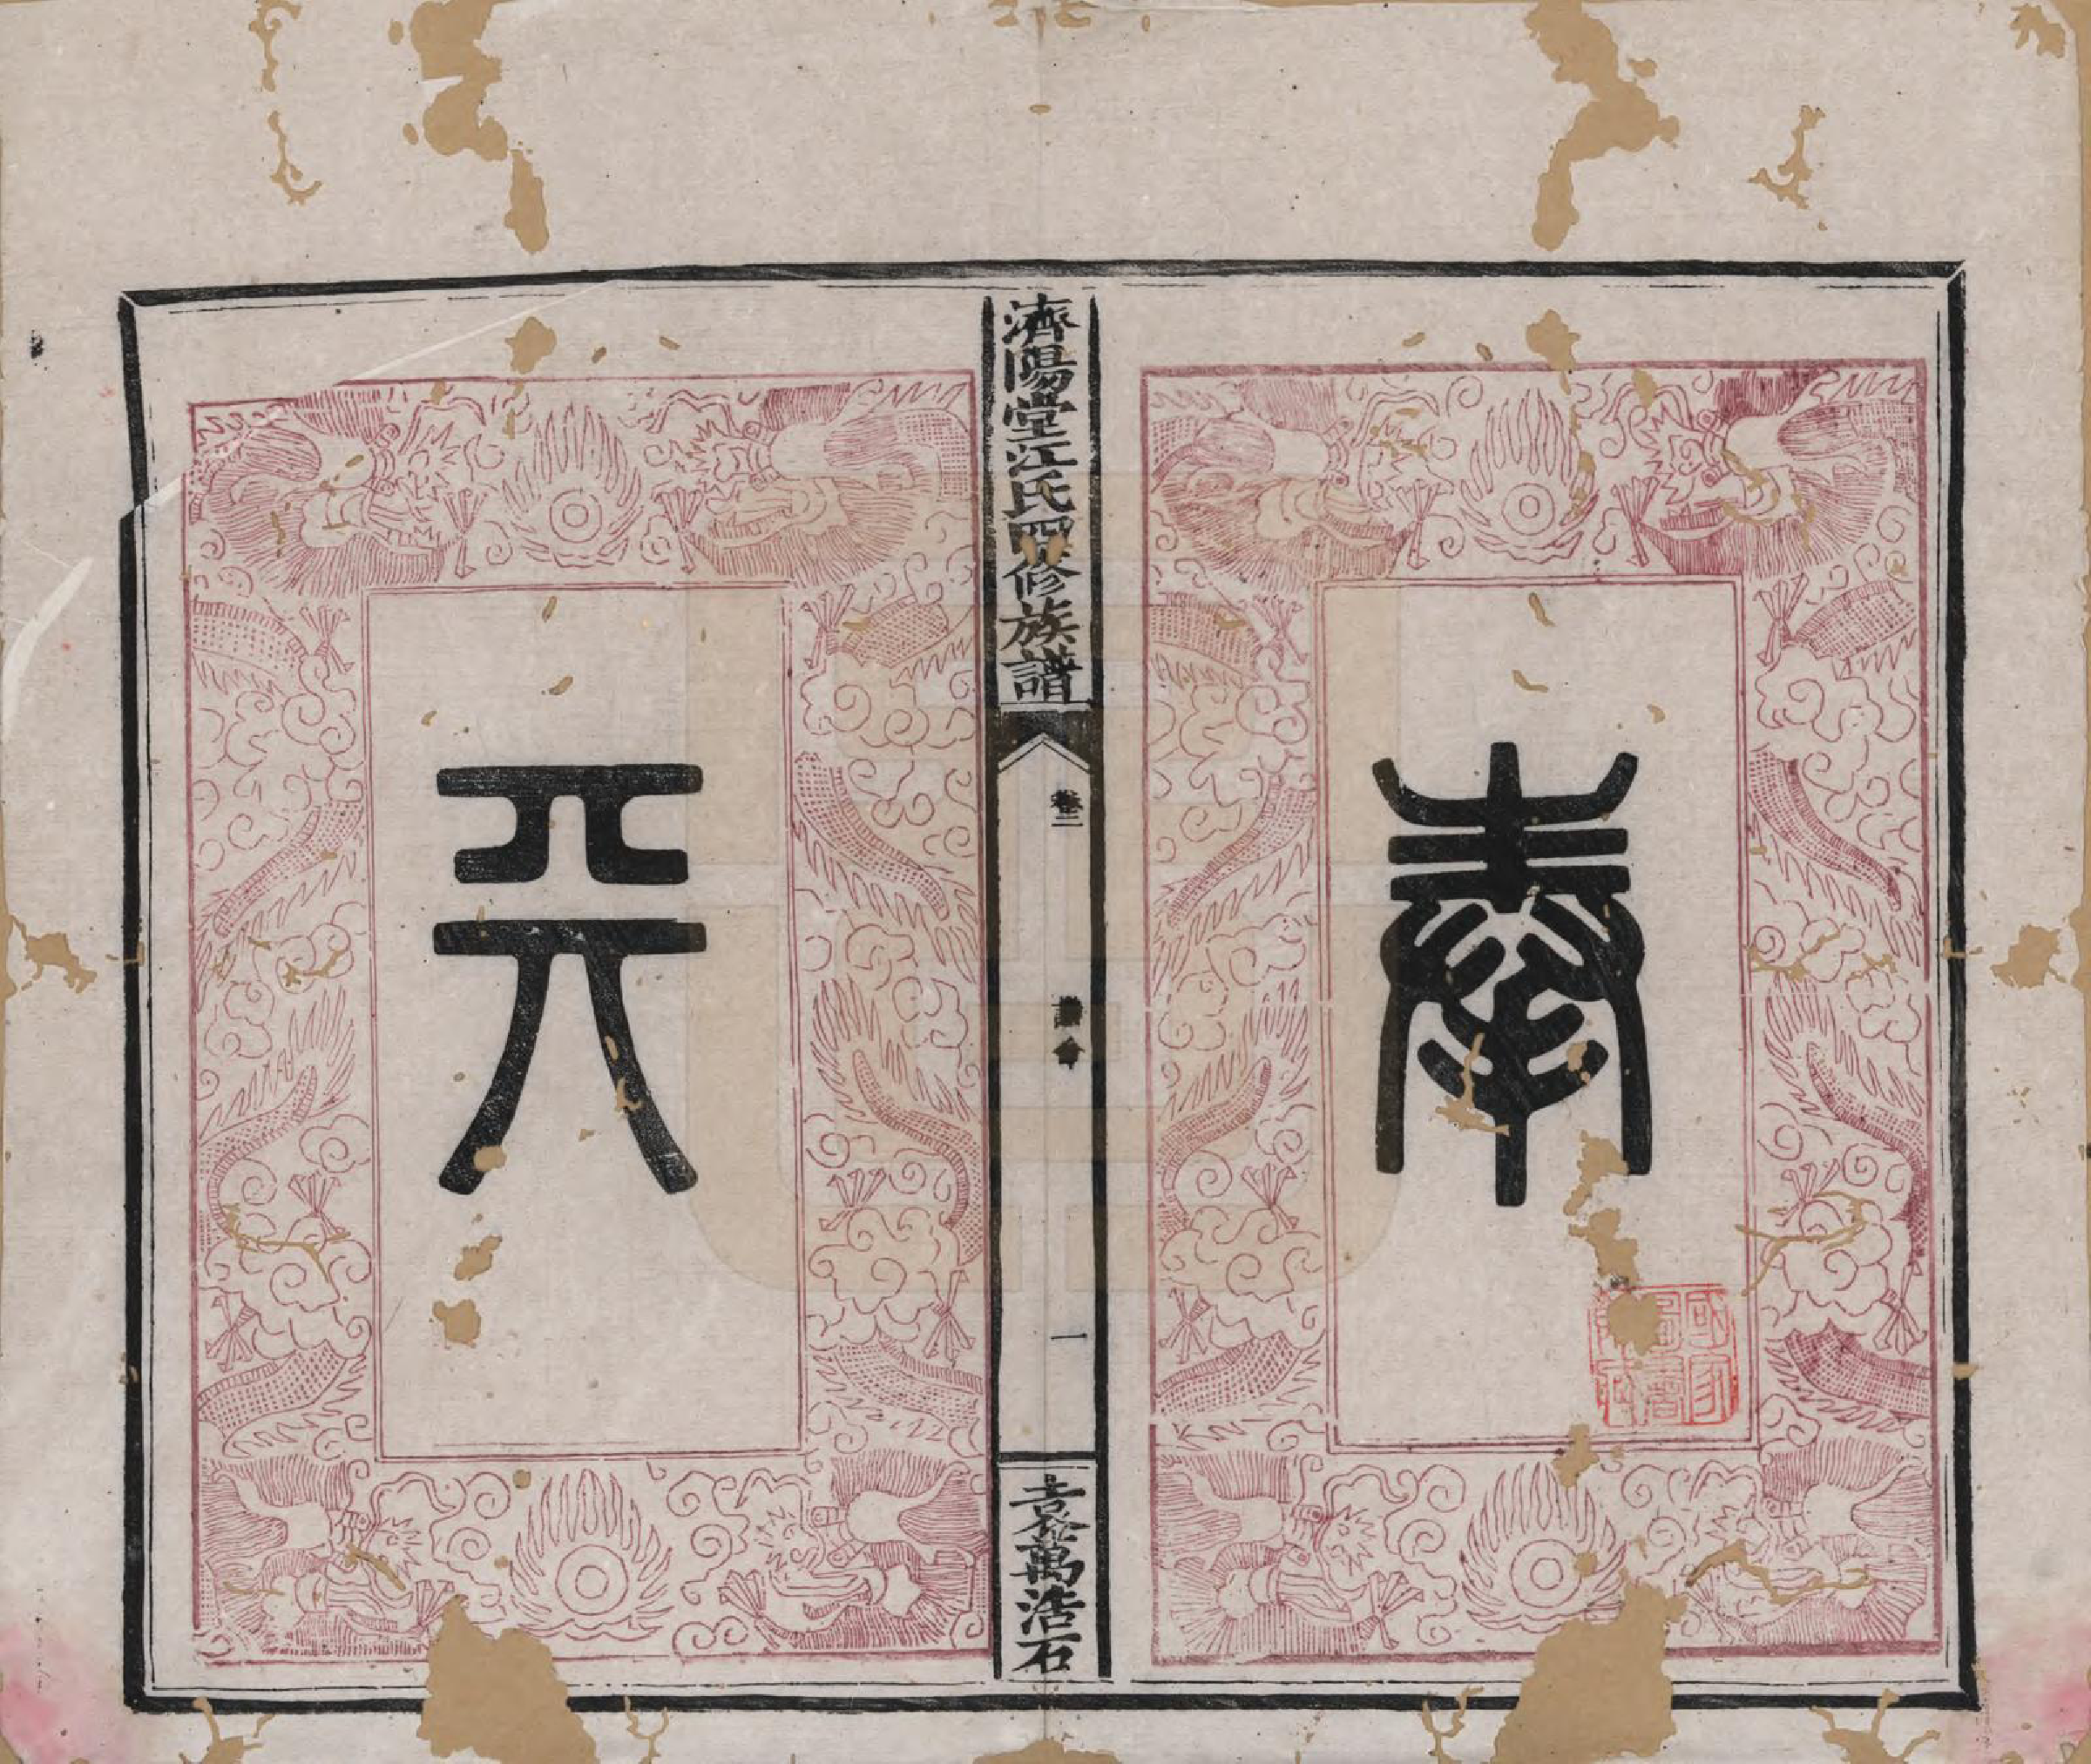 奉
濟陽堂江氏四修族譜
卷二
誥命
一
萬浩石
天
國家